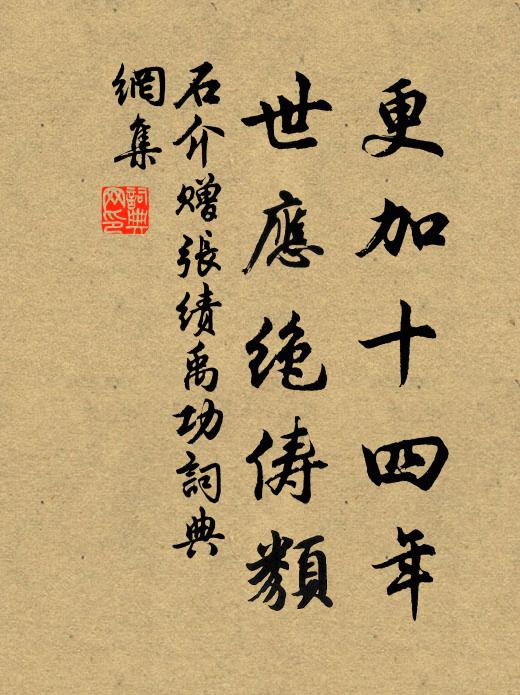 更加十四年
世應絶儔類
石介贈張績禹功詞典
網集
詞典網印